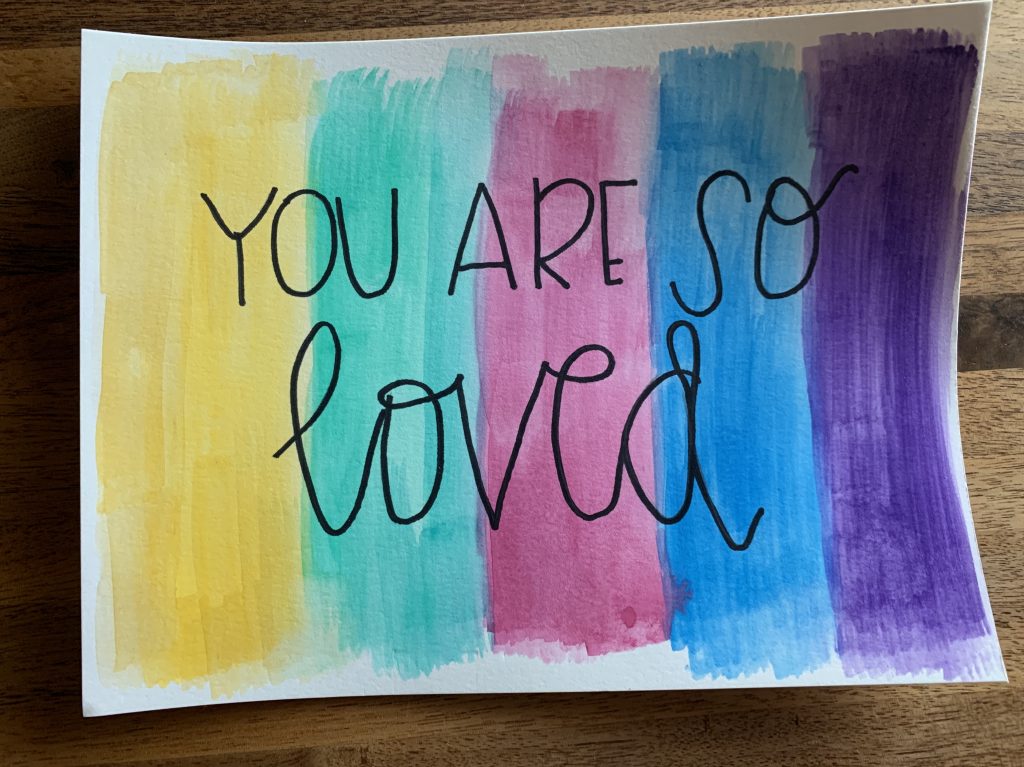 YOU ARE SO
loved